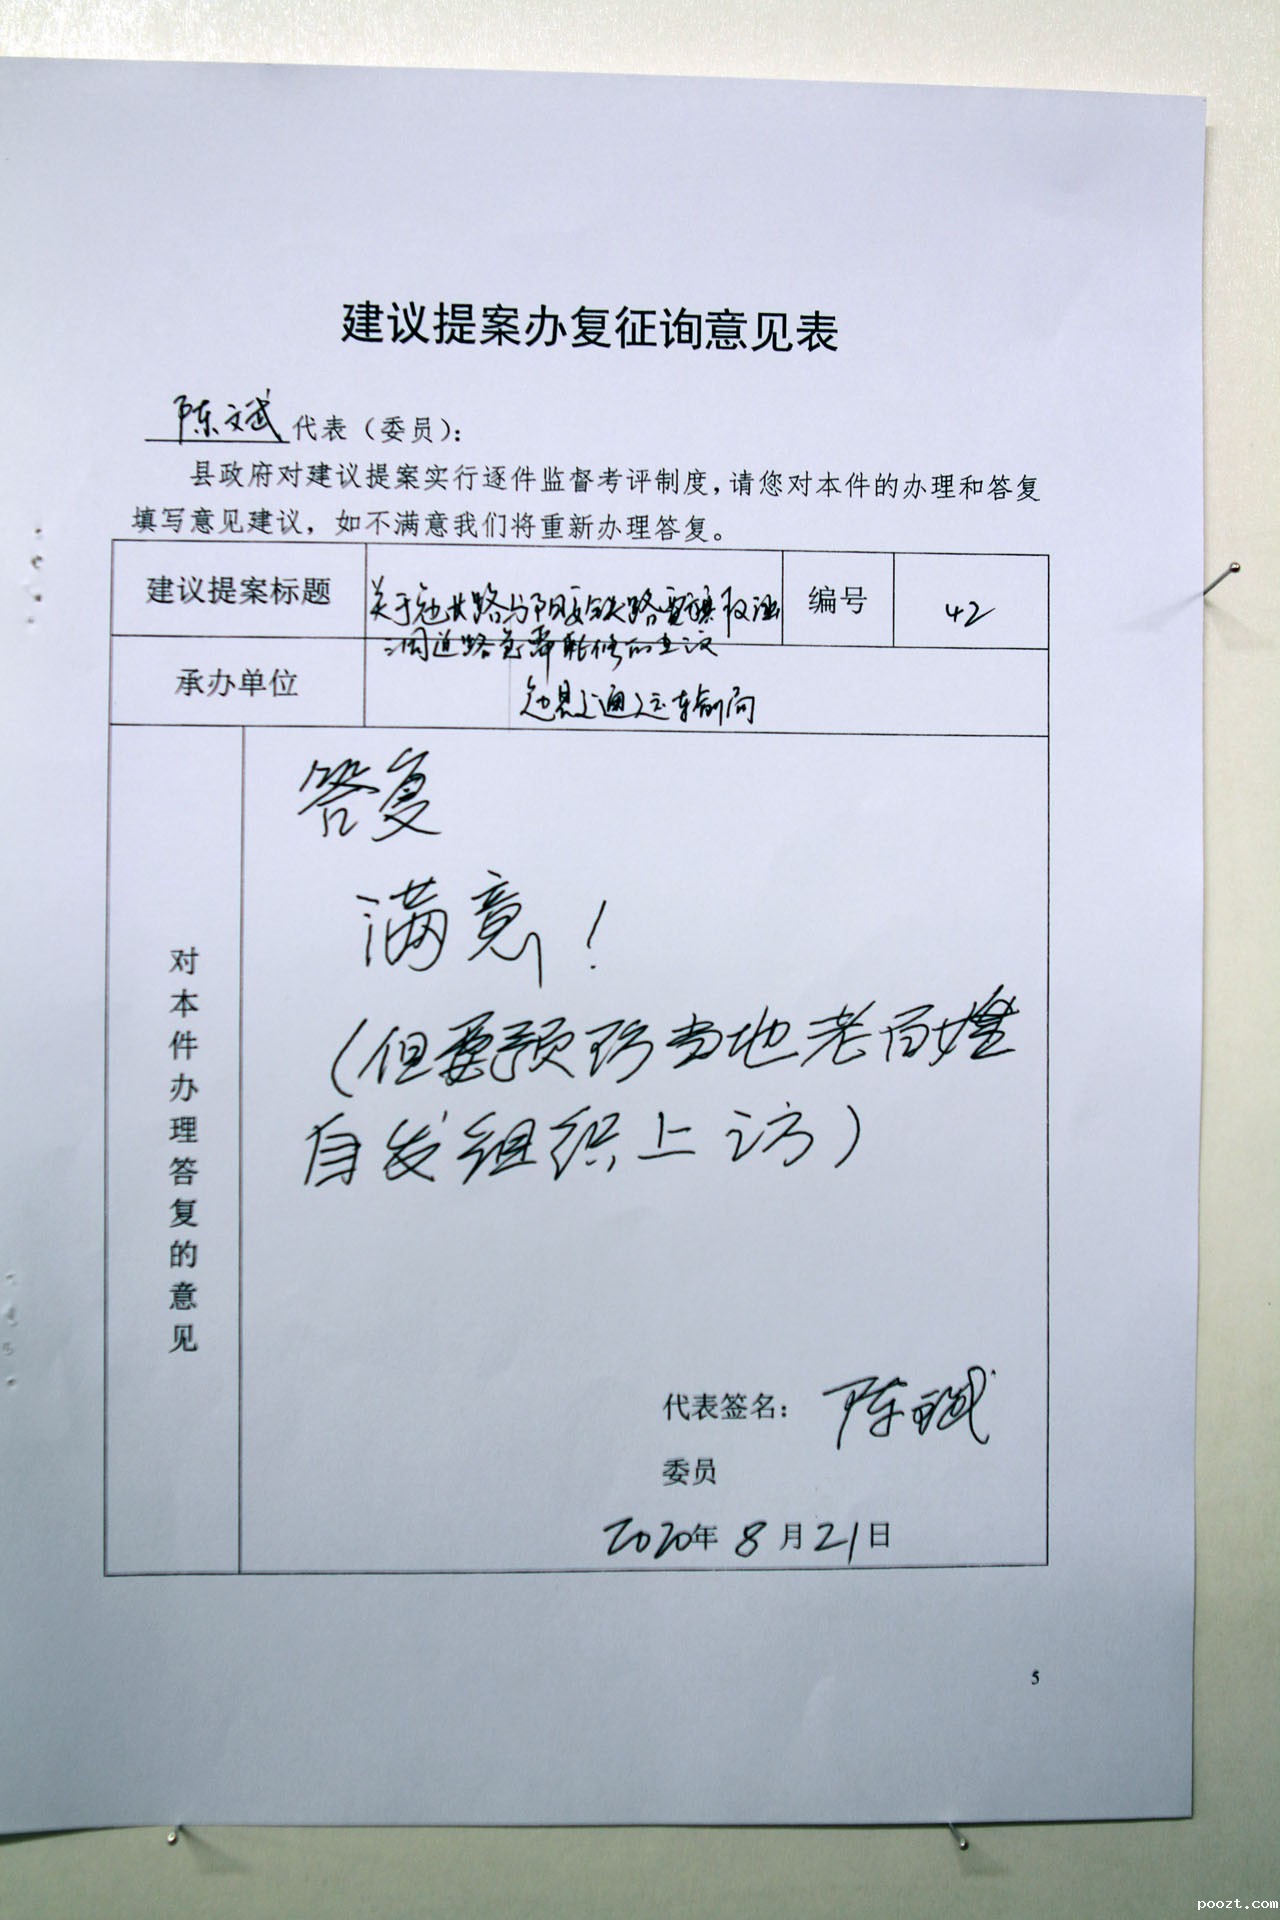 建议提案办复征询意见表
陈文斌代表（委员）：
县政府对建议提案实行逐件监督考评制度，请您对本件的办理和答复
填写意见建议，如不满意我们将重新办理答复。
建议提案标题
关于勉
路与阳安铁路
编号
42
道路
的建议
承办单位
勉县交通运输局
对本件办理答复的意见
答复
满意！
（但要预防当地老百姓
自发组织上访）
代表签名：陈文斌
委员
2020年8月21日
5
poozt.com